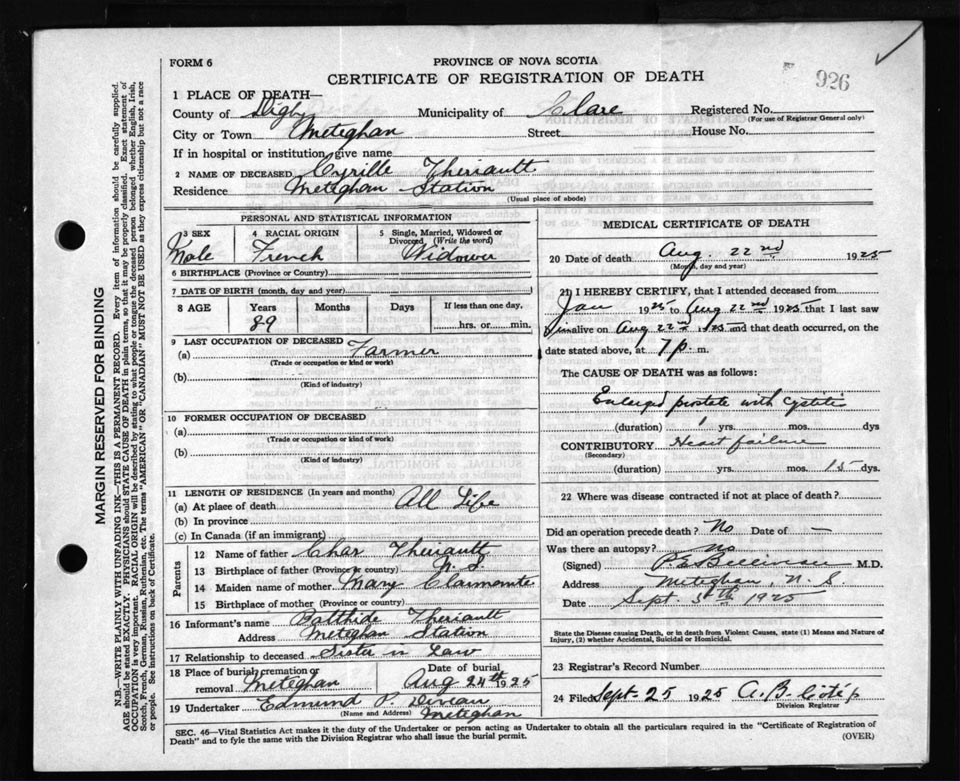 FORM 6
PROVINCE OF NOVA SCOTIA
CERTIFICATE OF REGISTRATION OF DEATH
926
1 PLACE OF DEATH—
County of Digby Municipality of Clare Registered No.
(For use of Registrar General only)
City or Town Meteghan Street House No.
If in hospital or institution, give name
2 NAME OF DECEASED Cyrille Theriault
Residence Meteghan Station
(Usual place of abode)
MARGIN RESERVED FOR BINDING
N.B.—WRITE PLAINLY WITH UNFADING INK—THIS IS A PERMANENT RECORD. Every item of information should be carefully supplied.
AGE should be stated EXACTLY. PHYSICIANS should STATE CAUSE OF DEATH in plain terms, so that it may be properly classified. Exact statement of
OCCUPATION is very important. RACIAL ORIGIN will be described by stating to what people or tongue the deceased person belonged whether English, Irish,
Scotch, French, German, Russian, Ruthenian, etc. The terms "AMERICAN" OR "CANADIAN" MUST NOT BE USED as they express citizenship but not a race
or people. See instructions on back of Certificate.
PERSONAL AND STATISTICAL INFORMATION
3 SEX
Male
4 RACIAL ORIGIN
French
5 Single, Married, Widowed or
Divorced (Write the word)
Widower
6 BIRTHPLACE (Province or Country)
7 DATE OF BIRTH (month, day and year)
8 AGE Years Months Days If less than one day,
89 hrs. or min.
9 LAST OCCUPATION OF DECEASED
(a) Farmer
(Trade or occupation or kind of work)
(b)
(Kind of industry)
10 FORMER OCCUPATION OF DECEASED
(a)
(Trade or occupation or kind of work)
(b)
(Kind of industry)
11 LENGTH OF RESIDENCE (In years and months)
(a) At place of death All Life
(b) In province
(c) In Canada (if an immigrant)
Parents
12 Name of father Char Theriault
13 Birthplace of father (Province or country) N.S.
14 Maiden name of mother Mary
15 Birthplace of mother (Province or country)
16 Informant's name Theriault
Address Meteghan Station
17 Relationship to deceased Sister n Law
18 Place of burial, cremation or
removal Meteghan
Date of burial
Aug 24th 1925
19 Undertaker Edmund P.
(Name and Address) Meteghan
MEDICAL CERTIFICATE OF DEATH
20 Date of death Aug. 22nd 1925
(Month, day and year)
21 I HEREBY CERTIFY, that I attended deceased from
Jan 1925 to Aug 22nd 1925 that I last saw
him alive on Aug 22nd 1925 and that death occurred, on the
date stated above, at 7 p. m.
The CAUSE OF DEATH was as follows:
Enlarged prostate with cystitis
(duration) 1 yrs. mos. dys
CONTRIBUTORY Heart failure
(Secondary)
(duration) yrs. mos. 15 dys.
22 Where was disease contracted if not at place of death?
Did an operation precede death? No Date of —
Was there an autopsy? No
(Signed) M.D.
Address Meteghan, N.S
Date Sept. 5th 1925
State the Disease causing Death, or in death from Violent Causes, state (1) Means and Nature of
Injury, (2) whether Accidental, Suicidal or Homicidal.
23 Registrar's Record Number
24 Filed Sept. 25 1925 A.B.
Division Registrar
SEC. 46—Vital Statistics Act makes it the duty of the Undertaker or person acting as Undertaker to obtain all the particulars required in the "Certificate of Registration of
Death" and to fyle the same with the Division Registrar who shall issue the burial permit.
(OVER)